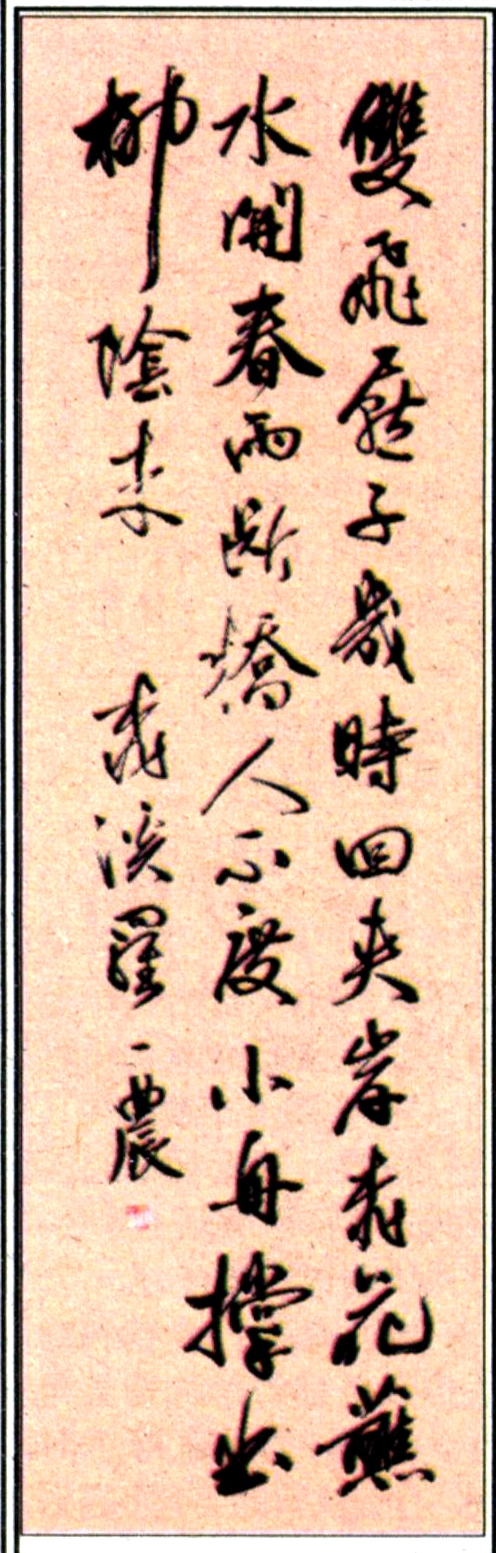 雙飛燕子幾時回夾岸桃花蘸
水開春雨斷橋人不度小舟撐出
柳陰來 桃溪羅一農